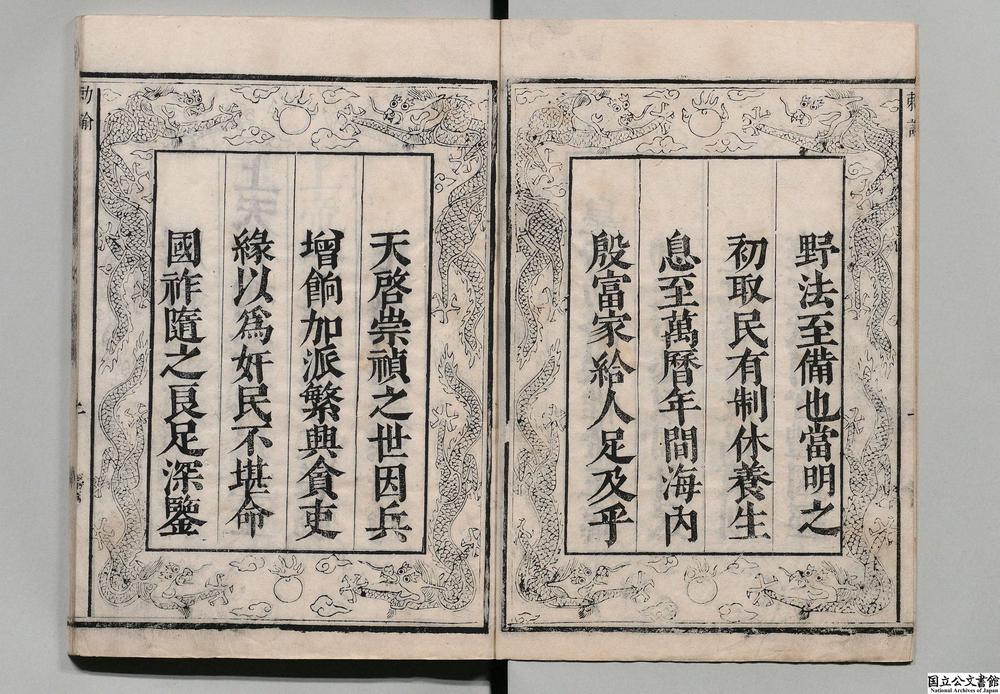 野法至備也當明之
初取民有制休養生
息至萬曆年間海內
殷富家給人足及乎
天啓崇禎之世因兵
增餉加派繁興貪吏
緣以爲奸民不堪命
國祚隨之良足深鑒
勅諭
国立公文書館
National Archives of Japan